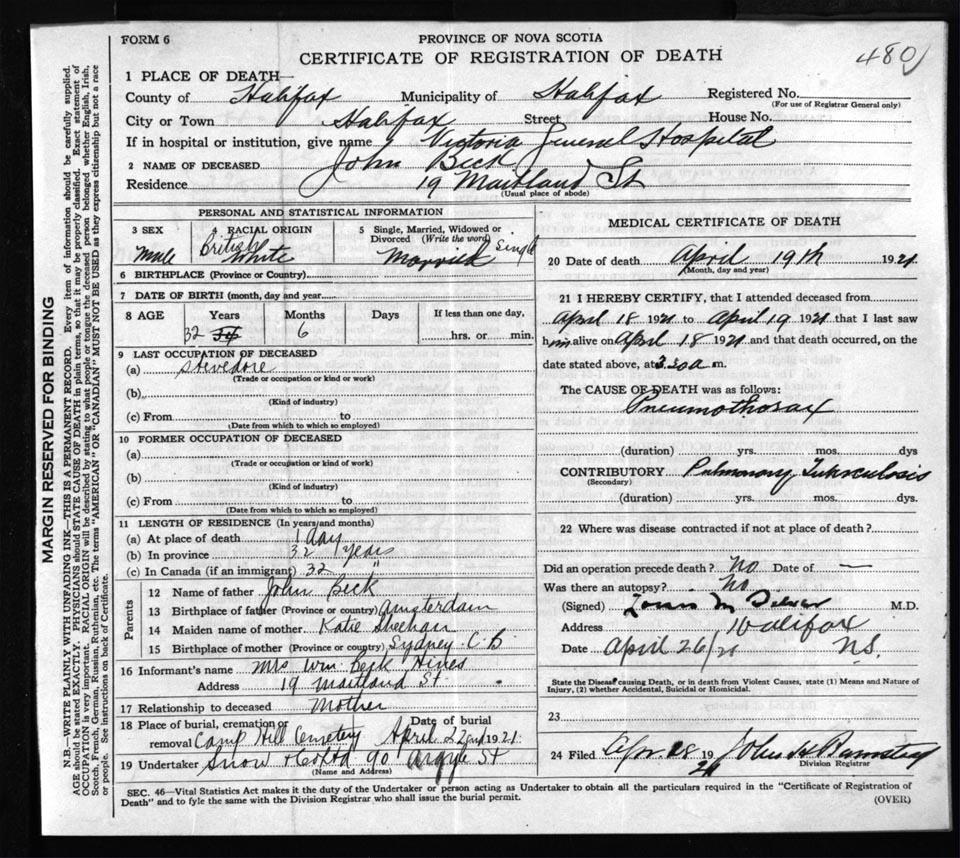 FORM 6
PROVINCE OF NOVA SCOTIA
CERTIFICATE OF REGISTRATION OF DEATH
480
1 PLACE OF DEATH—
County of Halifax Municipality of Halifax Registered No.
(For use of Registrar General only)
City or Town Halifax Street House No.
If in hospital or institution, give name Victoria General Hospital
2 NAME OF DECEASED John Beck
Residence 19 Maitland St
(Usual place of abode)
PERSONAL AND STATISTICAL INFORMATION
3 SEX 4 RACIAL ORIGIN 5 Single, Married, Widowed or Divorced (Write the word) Single
Male British White Married
6 BIRTHPLACE (Province or Country)
7 DATE OF BIRTH (month, day and year)
8 AGE Years Months Days If less than one day,
32 6 hrs. or min.
9 LAST OCCUPATION OF DECEASED
(a) Stevedore
(Trade or occupation or kind or work)
(b)
(Kind of industry)
(c) From to
(Date from which to which so employed)
10 FORMER OCCUPATION OF DECEASED
(a)
(Trade or occupation or kind of work)
(b)
(Kind of industry)
(c) From to
(Date from which to which so employed)
11 LENGTH OF RESIDENCE (In years and months)
(a) At place of death 1 day
(b) In province 32 years
(c) In Canada (if an immigrant) 32 "
Parents
12 Name of father John Beck
13 Birthplace of father (Province or country) Amsterdam
14 Maiden name of mother Katie Sheehan
15 Birthplace of mother (Province or country) Sydney C.B.
16 Informant's name Mrs Wm. Beck Hines
Address 19 Maitland St.
17 Relationship to deceased Mother
18 Place of burial, cremation or removal Camp Hill Cemetery Date of burial April 22nd 1921
19 Undertaker Snow & Co Ltd 90 Argyle St
(Name and Address)
MEDICAL CERTIFICATE OF DEATH
20 Date of death April 19th 1921
(Month, day and year)
21 I HEREBY CERTIFY, that I attended deceased from
April 18 1921 to April 19 1921 that I last saw
him alive on April 18 1921 and that death occurred, on the
date stated above, at 3.30 a m.
The CAUSE OF DEATH was as follows:
Pneumothorax
(duration) yrs. mos. dys
CONTRIBUTORY Pulmonary Tuberculosis
(Secondary)
(duration) yrs. mos. dys.
22 Where was disease contracted if not at place of death?
Did an operation precede death? No Date of —
Was there an autopsy? No
(Signed) M.D.
Address Halifax
Date April 26/21 N.S.
State the Disease causing Death, or in death from Violent Causes, state (1) Means and Nature of
Injury, (2) whether Accidental, Suicidal or Homicidal.
23
24 Filed Apr. 28 1921
Division Registrar
SEC. 46—Vital Statistics Act makes it the duty of the Undertaker or person acting as Undertaker to obtain all the particulars required in the "Certificate of Registration of
Death" and to fyle the same with the Division Registrar who shall issue the burial permit.
(OVER)
MARGIN RESERVED FOR BINDING
N.B.—WRITE PLAINLY WITH UNFADING INK—THIS IS A PERMANENT RECORD. Every item of information should be carefully supplied.
AGE should be stated EXACTLY. PHYSICIANS should STATE CAUSE OF DEATH in plain terms, so that it may be properly classified. Exact statement of
OCCUPATION is very important. RACIAL ORIGIN will be described by stating to what people or tongue the deceased person belonged whether English, Irish,
Scotch, French, German, Russian, Ruthenian, etc. The terms "AMERICAN" or "CANADIAN" MUST NOT BE USED as they express citizenship but not a race
or people. See instructions on back of Certificate.